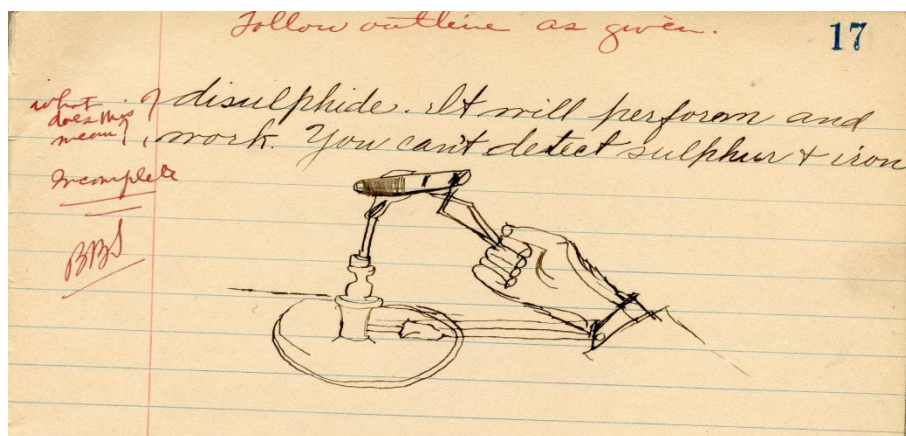 Follow outline as given.
17
what does this mean?
disulphide. It will perform and
work. You can't detect sulphur + iron
Incomplete
BBS